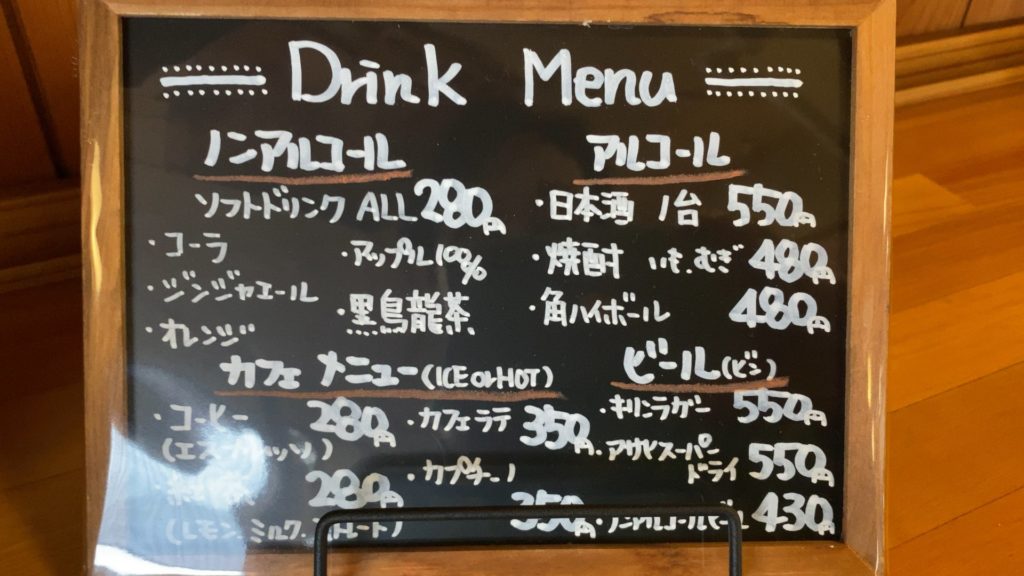 Drink Menu
ノンアルコール
ソフトドリンク ALL 280円
・コーラ
・ジンジャエール
・オレンジ
・アップル100%
・黒烏龍茶
カフェ メニュー(ICE or HOT)
・コーヒー 280円
(エスプレッソ)
280円
(レモン、ミルク、ストレート)
・カフェラテ 350円
・カプチーノ
350円
アルコール
・日本酒 1合 550円
・焼酎 いも、むぎ 480円
・角ハイボール 480円
ビール(ビン)
・キリンラガー 550円
・アサヒスーパー
ドライ 550円
・ノンアルコールビール 430円